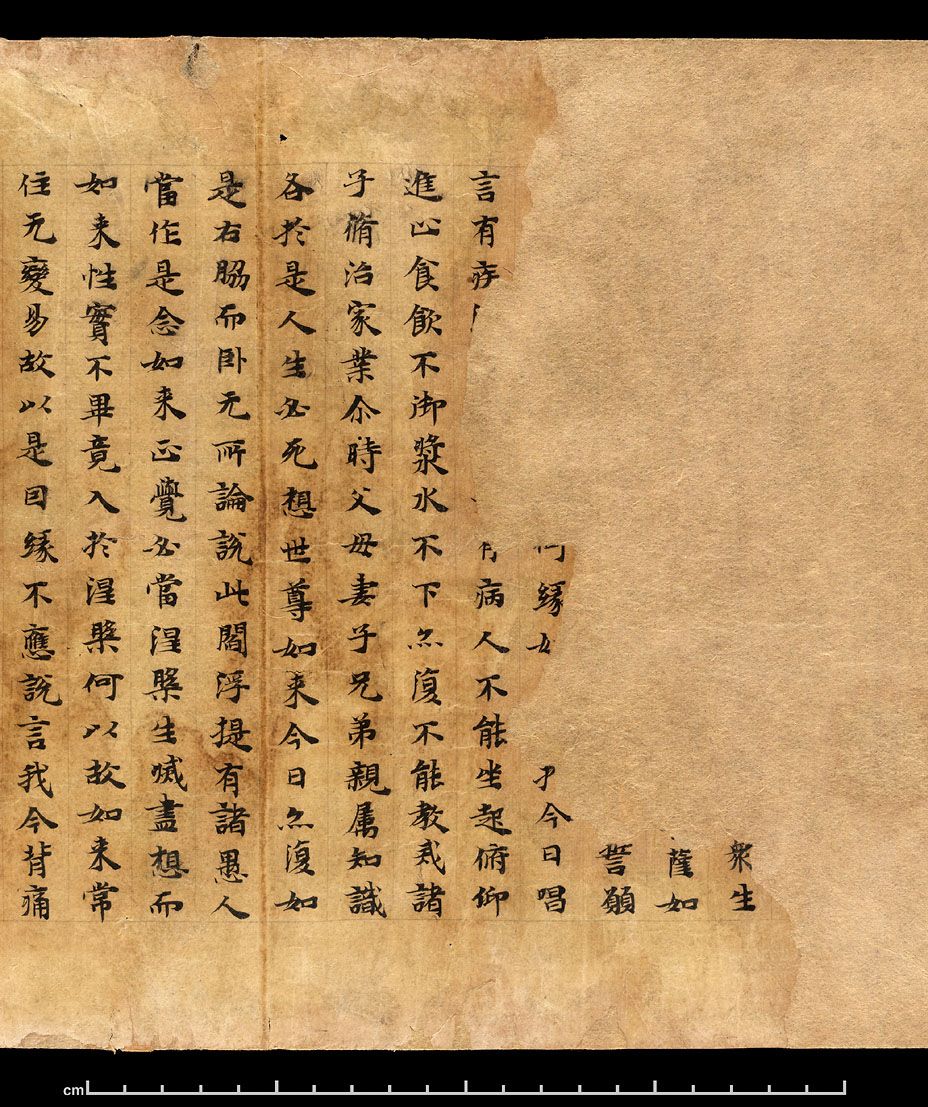 衆生
薩如
誓願
何縁 今日唱
言有 病人不能坐起俯仰
進止食飲不御漿水不下亦復不能教戒諸
子脩治家業尒時父母妻子兄弟親属知識
各於是人生必死想世尊如来今日亦復如
是右脇而卧无所論說此閻浮提有諸愚人
當作是念如来正覺必當涅槃生滅盡想而
如来性實不畢竟入於涅槃何以故如来常
住无變易故以是因縁不應說言我今背痛
cm